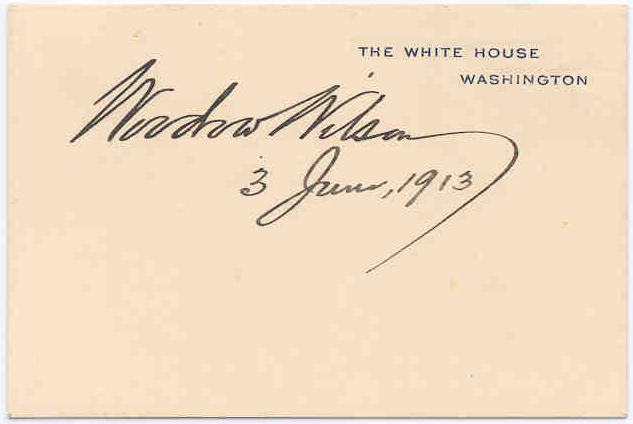 THE WHITE HOUSE
WASHINGTON
Woodrow Wilson
3 June, 1913